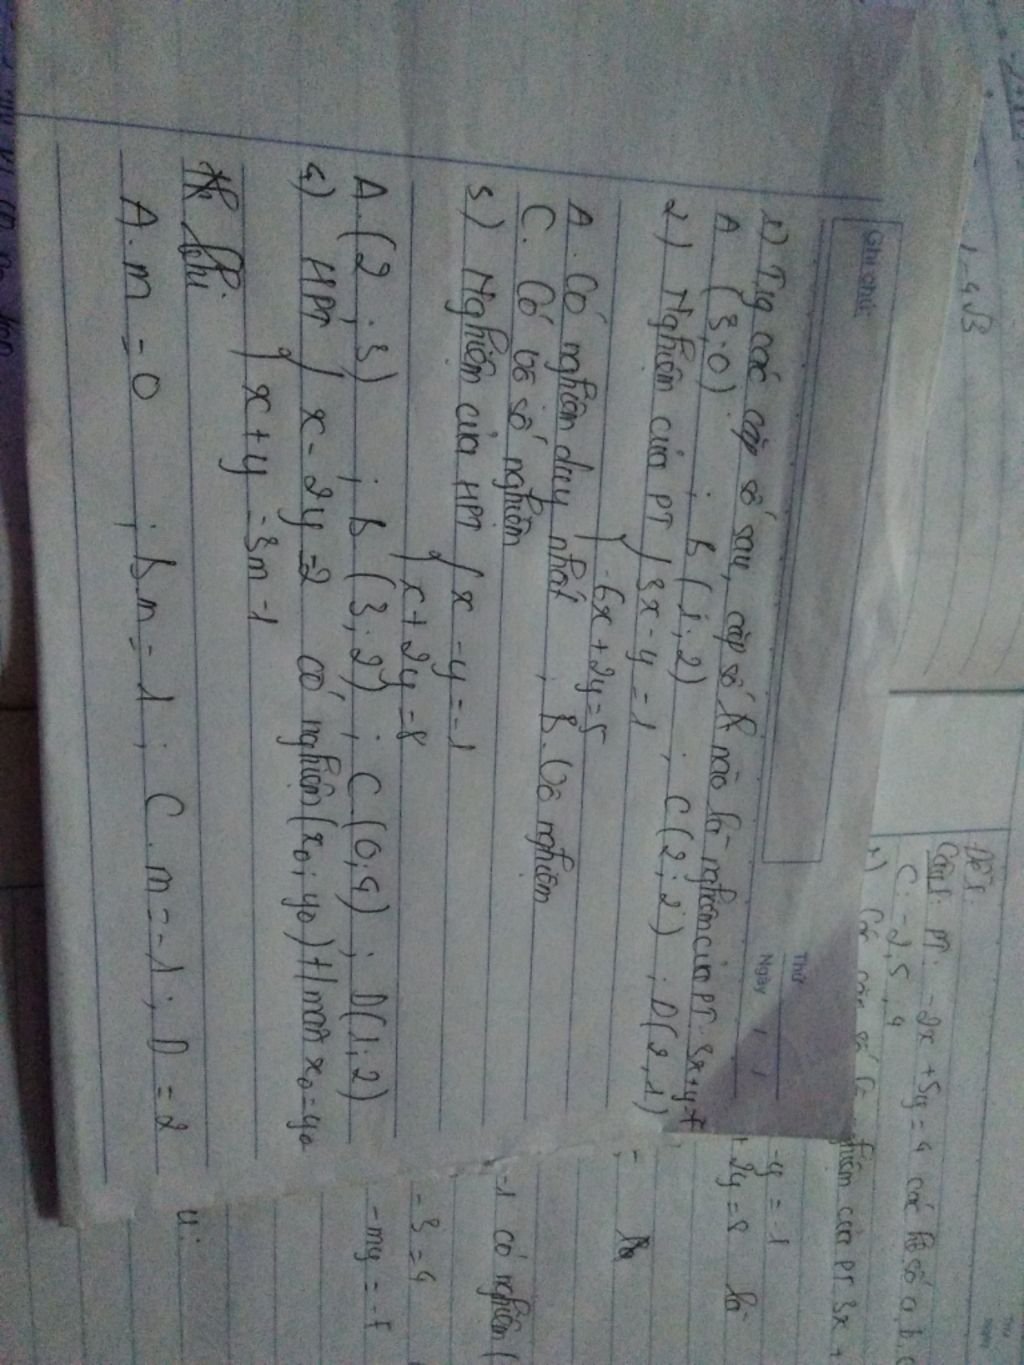 Ghi chú:
Thứ
Ngày
1) Trg các cặp số sau, cặp số nào là nghiệm của PT. 3x+y=
A (3;0) ; B (1;2) ; C (2;2) ; D (2;1)
2) Nghiệm của PT { 3x-y=1
-6x+2y=5
A. Có nghiệm duy nhất ; B. Vô nghiệm
C. Có vô số nghiệm
3) Nghiệm của HPT { x-y=-1
x+2y=8
A. (2;3) ; B (3;2) ; C (0;4) ; D (1;2)
4) HPT { x-2y=2 có nghiệm (x0;y0) t/mãn x0=y0
x+y=3m-1
khi
A. m=0 ; B m=1 ; C. m=-1 ; D=2
1-4√3
Đề 1:
Câu 1: PT: -2x+5y=4 các hệ số a, b,
C: -2,5,4
nghiệm của PT 3x+
-y=-1
+2y=8 là
-1 có nghiệm (
-3=4
-my=-